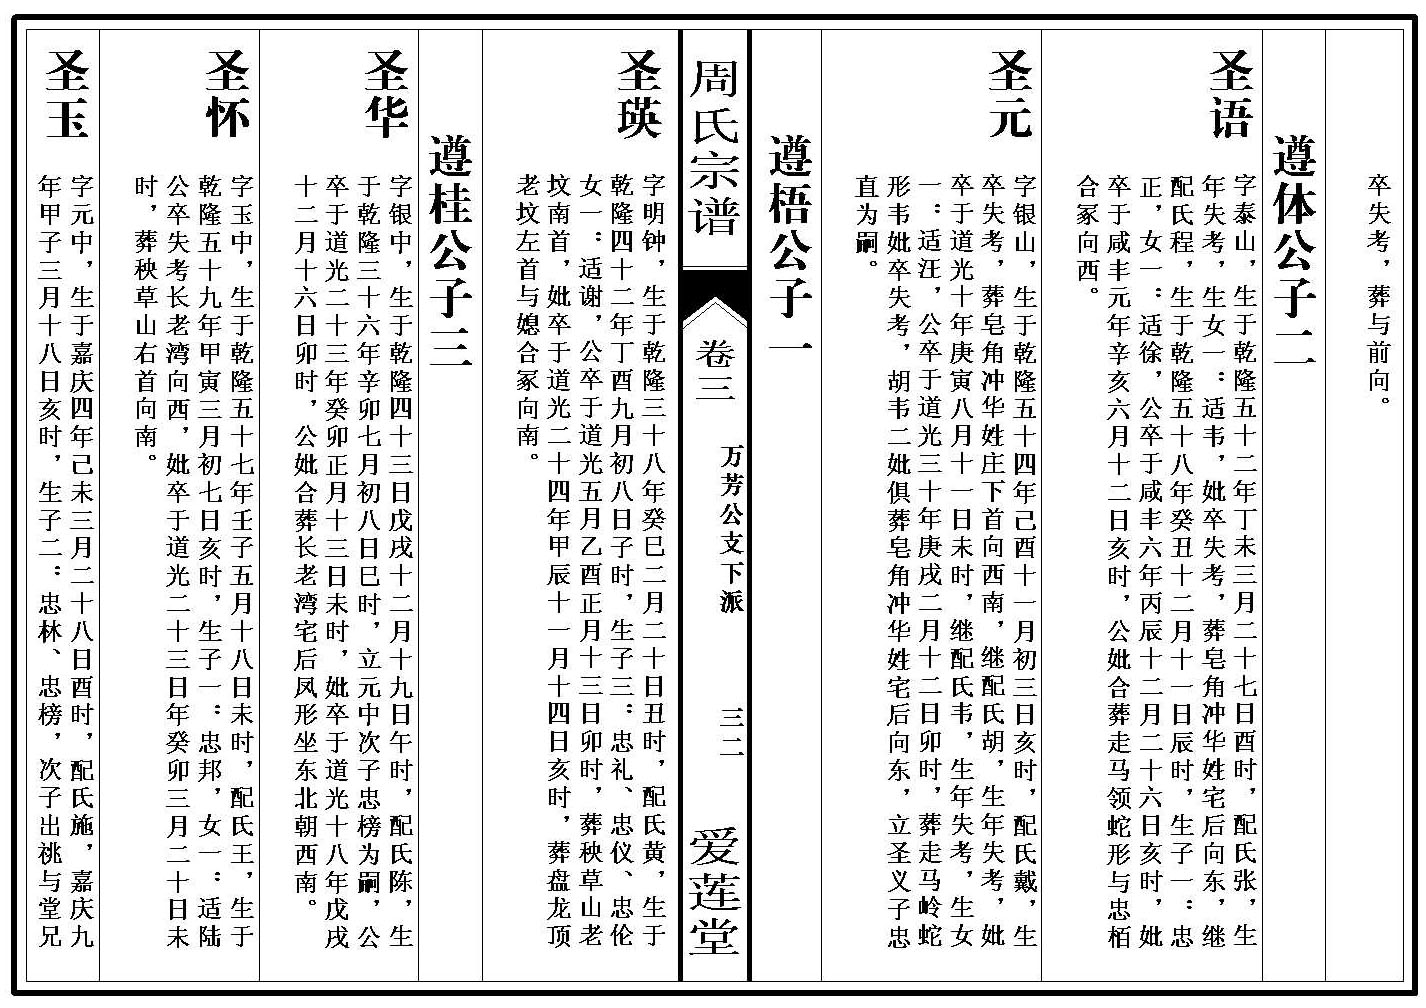 卒失考，葬与前向。
遵体公子二
圣语
字泰山，生于乾隆五十二年丁未三月二十七日酉时，配氏张，生
年失考，生女一：适韦，妣卒失考，葬皂角冲华姓宅后向东，继
配氏程，生于乾隆五十八年癸丑十二月十一日辰时，生子一：忠
正，女一：适徐，公卒于咸丰六年丙辰十二月二十六日亥时，妣
卒于咸丰元年辛亥六月十二日亥时，公妣合葬走马领蛇形与忠栢
合冢向西。
圣元
字银山，生于乾隆五十四年己酉十一月初三日亥时，配氏戴，生
卒失考，葬皂角冲华姓庄下首向西南，继配氏胡，生年失考，妣
卒于道光十年庚寅八月十一日未时，继配氏韦，生年失考，生女
一：适汪，公卒于道光三十年庚戌二月十二日卯时，葬走马岭蛇
形韦妣卒失考，胡韦二妣俱葬皂角冲华姓宅后向东，立圣义子忠
直为嗣。
遵梧公子一
周氏宗谱
卷三
万芳公支下派
三二
爱莲堂
圣瑛
字明钟，生于乾隆三十八年癸巳二月二十日丑时，配氏黄，生于
乾隆四十二年丁酉九月初八日子时，生子三：忠礼、忠仪、忠伦
女一：适谢，公卒于道光五月乙酉正月十三日卯时，葬秧草山老
坟南首，妣卒于道光二十四年甲辰十一月十四日亥时，葬盘龙顶
老坟左首与媳合冢向南。
遵桂公子三
圣华
字银中，生于乾隆四十三日戊戌十二月十九日午时，配氏陈，生
于乾隆三十六年辛卯七月初八日巳时，立元中次子忠榜为嗣，公
卒于道光二十三年癸卯正月十三日未时，妣卒于道光十八年戊戌
十二月十六日卯时，公妣合葬长老湾宅后凤形坐东北朝西南。
圣怀
字玉中，生于乾隆五十七年壬子五月十八日未时，配氏王，生于
乾隆五十九年甲寅三月初七日亥时，生子一：忠邦，女一：适陆
公卒失考长老湾向西，妣卒于道光二十三日年癸卯三月二十日未
时，葬秧草山右首向南。
圣玉
字元中，生于嘉庆四年己未三月二十八日酉时，配氏施，嘉庆九
年甲子三月十八日亥时，生子二：忠林、忠榜，次子出祧与堂兄